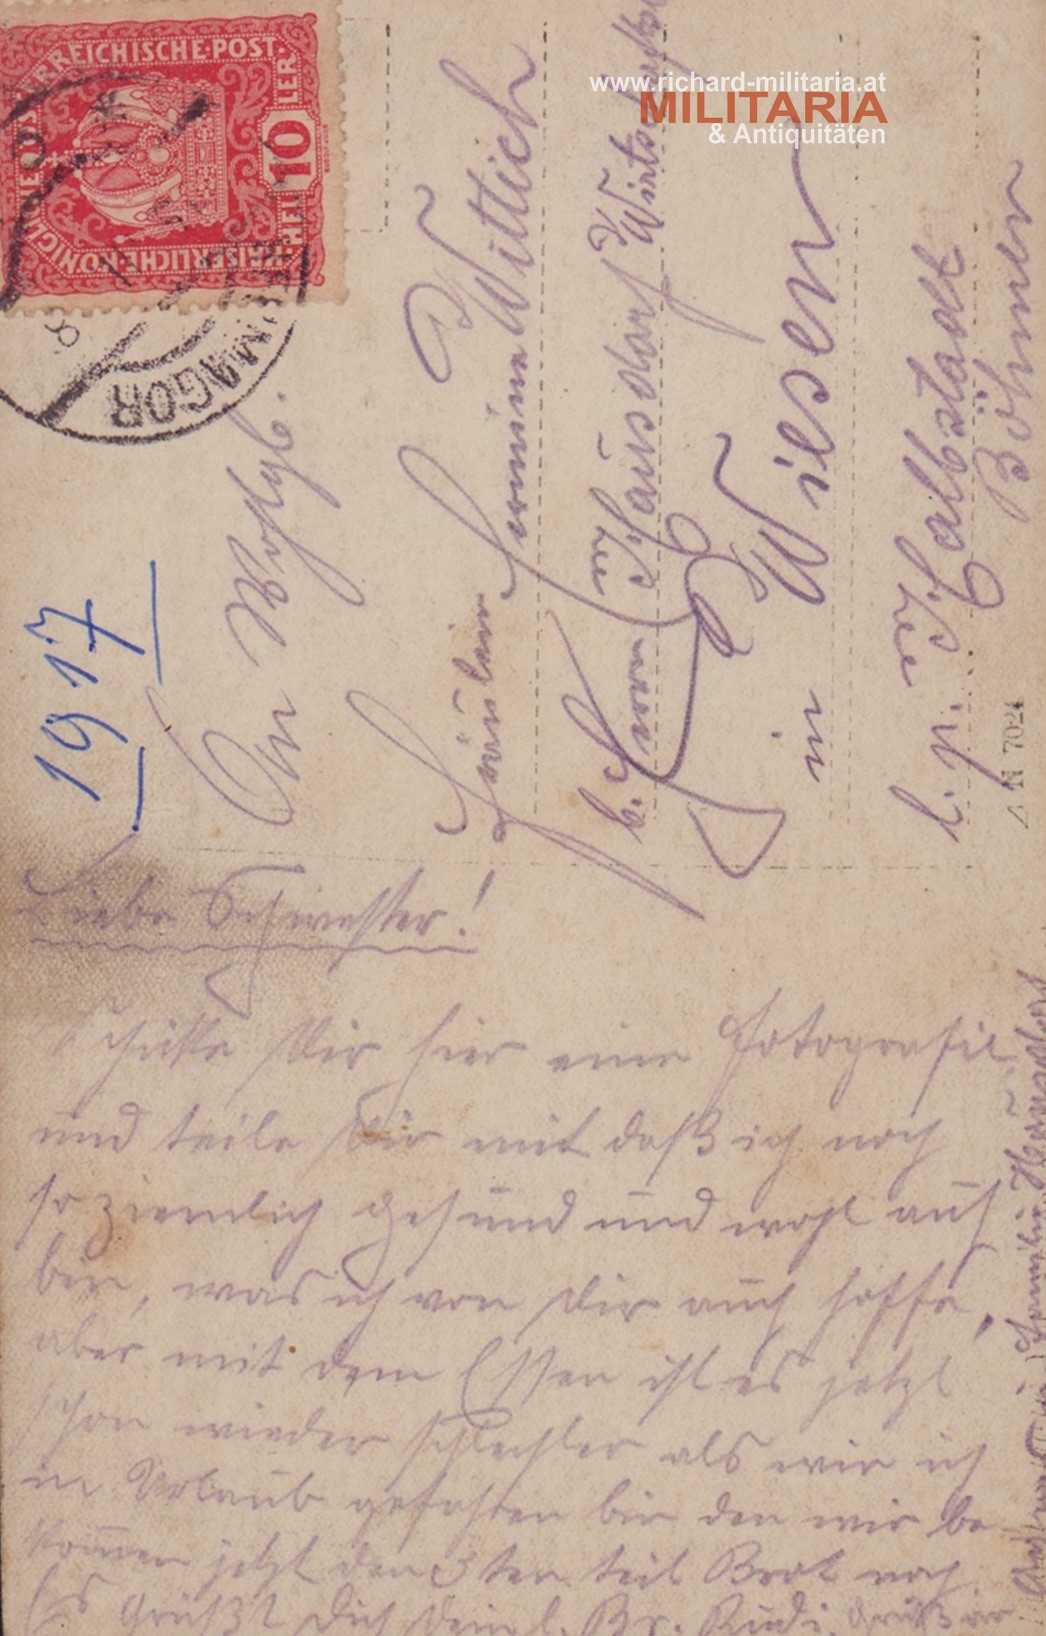 www.richard-militaria.at
MILITARIA
& Antiquitäten
KAISERLICHE KÖNIGLICHE ÖSTERREICHISCHE POST
HELLER 10 HELLER
HERMAGOR
1917
An Wohlg.
Fräulein Hermine Wittich
b. Herrn Hausdorf Wirtschaftsb
in Wisen
l. p. Halbstadt
Böhmen
N 7024
Liebe Schwester!
Schicke Dir hier eine Fotografie
und teile Dir mit daß ich noch
so ziemlich gesund und wohl auf
bin, was ich von Dir auch hoffe,
aber mit dem Essen ist es jetzt
schon wieder schlechter als wie ich
in Urlaub gefahren bin den wir be
kommen jetzt den 3ten teil Brot noch.
Es Grüßt Dich Dein l. Br. Rudi. Grüß mir
Familie Hausdorf